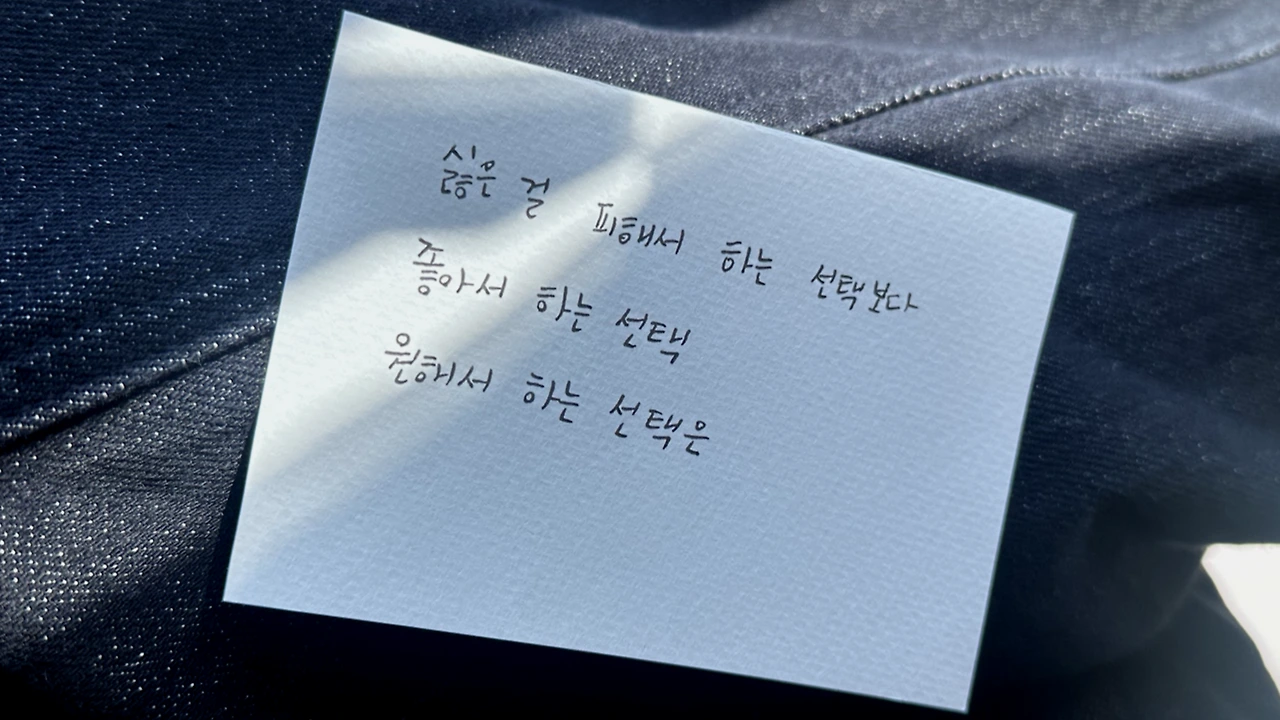 싫은 걸 피해서 하는 선택보다
좋아서 하는 선택
원해서 하는 선택은